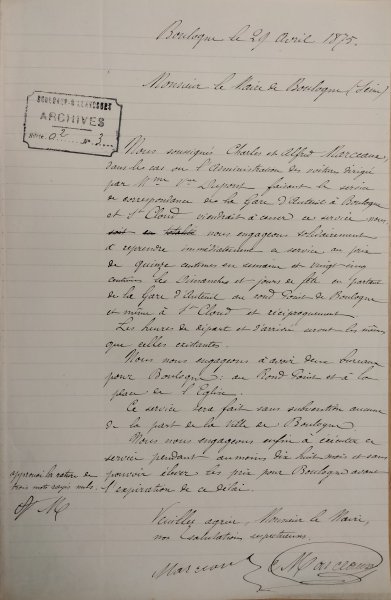 Boulogne le 29 Avril 1875.
Monsieur le Maire de Boulogne (Seine)
BOULOGNE-BILLANCOURT
ARCHIVES
SÉRIE O 2 N° 3
Nous soussignés Charles et Alfred Marceaux,
dans le cas ou l'administration des voitures dirigée
par Mme Vve Dupont, faisant le service
de correspondance de la Gare d'Auteuil à Boulogne
et St Cloud viendrait à cesser ce service nous
soit en totalité nous engageons solidairement
à reprendre immédiatement ce service au prix
de quinze centimes en semaine et vingt-cinq
centimes les dimanches et jours de fête en partant
de la Gare d'Auteuil au rond Point de Boulogne
et même à St Cloud et réciproquement
Les heures de départ et d'arrivée seront les mêmes
que celles existantes.
Nous nous engageons à avoir deux bureaux
pour Boulogne : au Rond Point et à la
place de l'Eglise.
Ce service sera fait sans subvention aucune
de la part de la ville de Boulogne
Nous nous engageons enfin à exécuter ce
service pendant au moins dix huit mois et sans
pouvoir élever les prix pour Boulogne avant
l'expiration de ce délai.
approuvé la rature de
trois mots rayés nuls.
M
Veuillez agréer, Monsieur le Maire,
nos salutations respectueuses.
Marceaux
C Marceaux